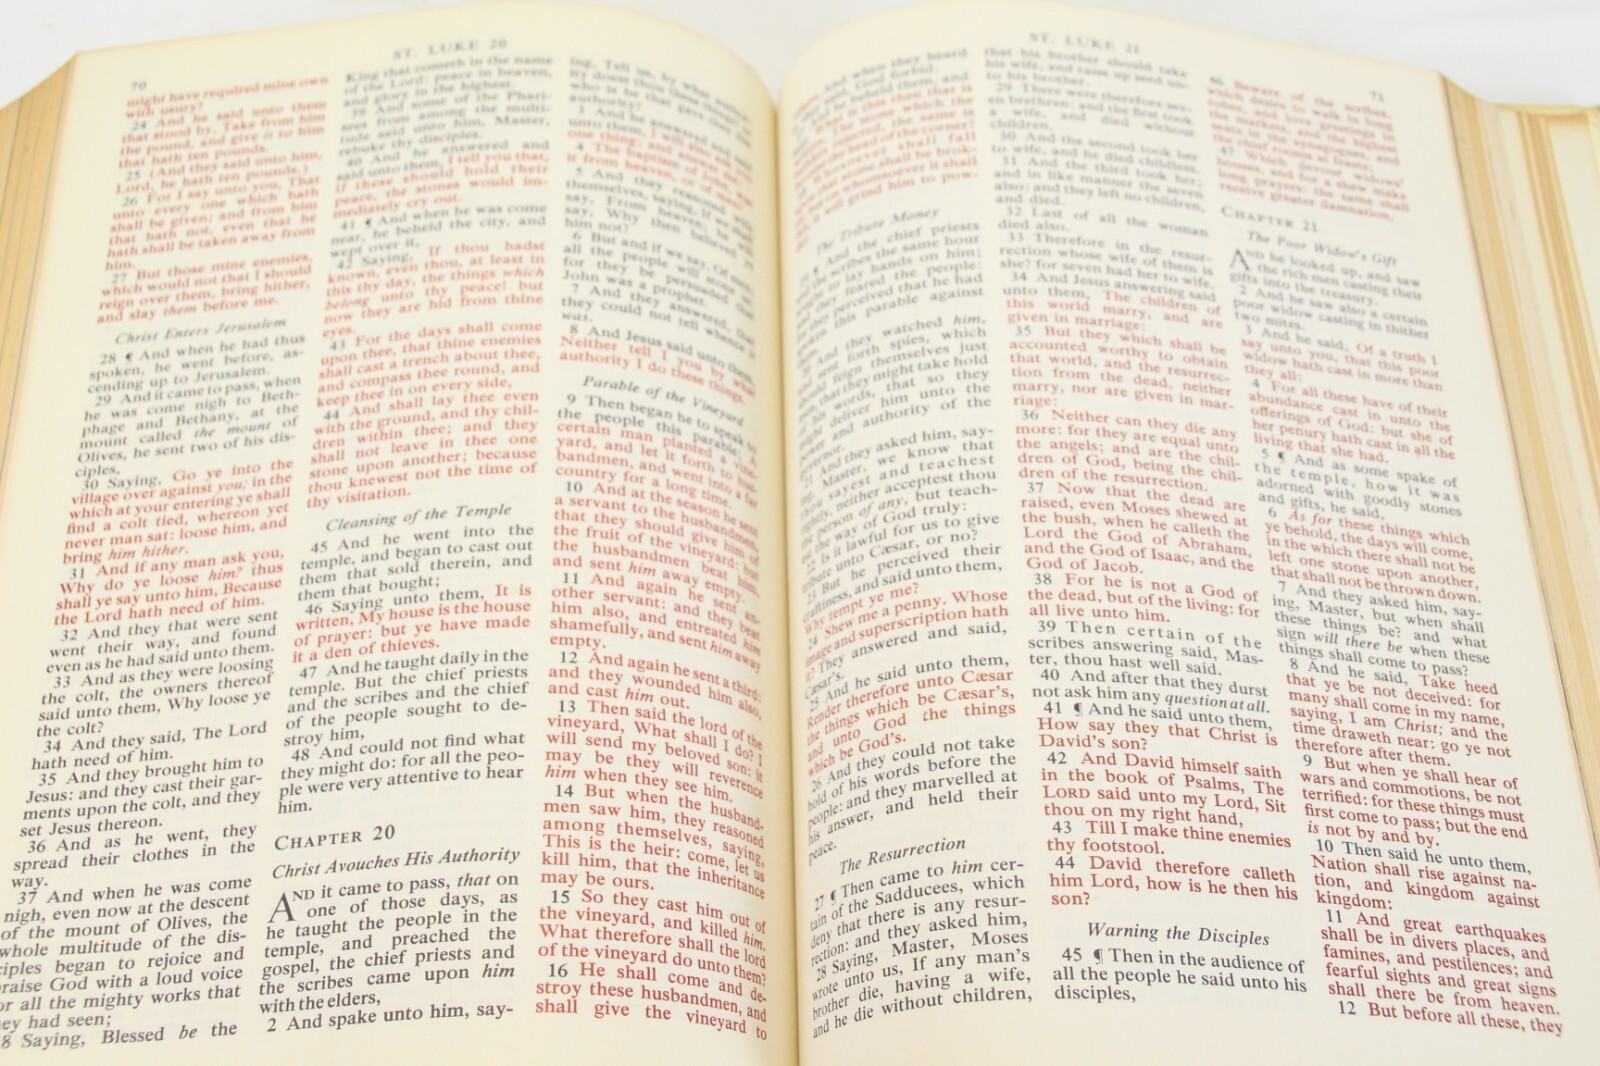 ST. LUKE 20
70
might have required mine own
with usury?
24 And he said unto them
that stood by, Take from him
the pound, and give it to him
that hath ten pounds.
25 (And they said unto him,
Lord, he hath ten pounds.)
26 For I say unto you, That
unto every one which hath
shall be given; and from him
that hath not, even that he
hath shall be taken away from
him.
27 But those mine enemies,
which would not that I should
reign over them, bring hither,
and slay them before me.
Christ Enters Jerusalem
28 ¶ And when he had thus
spoken, he went before, as-
cending up to Jerusalem.
29 And it came to pass, when
he was come nigh to Beth-
phage and Bethany, at the
mount called the mount of
Olives, he sent two of his dis-
ciples,
30 Saying, Go ye into the
village over against you; in the
which at your entering ye shall
find a colt tied, whereon yet
never man sat: loose him, and
bring him hither.
31 And if any man ask you,
Why do ye loose him? thus
shall ye say unto him, Because
the Lord hath need of him.
32 And they that were sent
went their way, and found
even as he had said unto them.
33 And as they were loosing
the colt, the owners thereof
said unto them, Why loose ye
the colt?
34 And they said, The Lord
hath need of him.
35 And they brought him to
Jesus: and they cast their gar-
ments upon the colt, and they
set Jesus thereon.
36 And as he went, they
spread their clothes in the
way.
37 And when he was come
nigh, even now at the descent
of the mount of Olives, the
whole multitude of the dis-
ciples began to rejoice and
praise God with a loud voice
for all the mighty works that
they had seen;
38 Saying, Blessed be the
King that cometh in the name
of the Lord: peace in heaven,
and glory in the highest.
39 And some of the Phari-
sees from among the multi-
tude said unto him, Master,
rebuke thy disciples.
40 And he answered and
said unto them, I tell you that,
if these should hold their
peace, the stones would im-
mediately cry out.
41 ¶ And when he was come
near, he beheld the city, and
wept over it,
42 Saying, If thou hadst
known, even thou, at least in
this thy day, the things which
belong unto thy peace! but
now they are hid from thine
eyes.
43 For the days shall come
upon thee, that thine enemies
shall cast a trench about thee,
and compass thee round, and
keep thee in every side,
44 And shall lay thee even
with the ground, and thy chil-
dren within thee; and they
shall not leave in thee one
stone upon another; because
thou knewest not the time of
thy visitation.
Cleansing of the Temple
45 And he went into the
temple, and began to cast out
them that sold therein, and
them that bought;
46 Saying unto them, It is
written, My house is the house
of prayer: but ye have made
it a den of thieves.
47 And he taught daily in the
temple. But the chief priests
and the scribes and the chief
of the people sought to de-
stroy him,
48 And could not find what
they might do: for all the peo-
ple were very attentive to hear
him.
CHAPTER 20
Christ Avouches His Authority
AND it came to pass, that on
one of those days, as
he taught the people in the
temple, and preached the
gospel, the chief priests and
the scribes came upon him
with the elders,
2 And spake unto him, say-
ing, Tell us, by what
doest thou these
who is he that gave thee this
authority?
3 And he answered and said
unto them, I will also ask you
one thing; and answer me:
4 The baptism of John, was
it from heaven, or of men?
5 And they reasoned with
themselves, saying, If we shall
say, From heaven; he will
say, Why then believed ye
him not?
6 But and if we say, Of men;
all the people will stone us:
for they be persuaded that
John was a prophet.
7 And they answered, that
they could not tell whence it
was.
8 And Jesus said unto them,
Neither tell I you by what
authority I do these things.
Parable of the Vineyard
9 Then began he to speak to
the people this parable; A
certain man planted a vine-
yard, and let it forth to hus-
bandmen, and went into a far
country for a long time.
10 And at the season he sent
a servant to the husbandmen,
that they should give him of
the fruit of the vineyard: but
the husbandmen beat him,
and sent him away empty.
11 And again he sent an-
other servant: and they beat
him also, and entreated him
shamefully, and sent him away
empty.
12 And again he sent a third:
and they wounded him also,
and cast him out.
13 Then said the lord of the
vineyard, What shall I do? I
will send my beloved son: it
may be they will reverence
him when they see him.
14 But when the husband-
men saw him, they reasoned
among themselves, saying,
This is the heir: come, let us
kill him, that the inheritance
may be ours.
15 So they cast him out of
the vineyard, and killed him.
What therefore shall the lord
of the vineyard do unto them?
16 He shall come and de-
stroy these husbandmen, and
shall give the vineyard to
ST. LUKE 21
71
And when they heard
God forbid.
he beheld them, and
What is this then that is
The stone which the
rejected, the same is
the head of the corner?
Whosoever shall
that stone shall be brok-
but on whomsoever it shall
it will grind him to pow-
The Tribute Money
¶ And the chief priests
the scribes the same hour
to lay hands on him;
they feared the people:
they perceived that he had
spoken this parable against
And they watched him,
sent forth spies, which
should feign themselves just
men, that they might take hold
of his words, that so they
might deliver him unto the
power and authority of the
governor.
21 And they asked him, say-
ing, Master, we know that
thou sayest and teachest
rightly, neither acceptest thou
the person of any, but teach-
est the way of God truly:
22 Is it lawful for us to give
tribute unto Cæsar, or no?
23 But he perceived their
craftiness, and said unto them,
Why tempt ye me?
24 Shew me a penny. Whose
image and superscription hath
it? They answered and said,
Cæsar's.
25 And he said unto them,
Render therefore unto Cæsar
the things which be Cæsar's,
and unto God the things
which be God's.
26 And they could not take
hold of his words before the
people: and they marvelled at
his answer, and held their
peace.
The Resurrection
27 ¶ Then came to him cer-
tain of the Sadducees, which
deny that there is any resur-
rection; and they asked him,
28 Saying, Master, Moses
wrote unto us, If any man's
brother die, having a wife,
and he die without children,
that his brother should take
his wife, and raise up seed un-
to his brother.
29 There were therefore sev-
en brethren: and the first took
a wife, and died without
children.
30 And the second took her
to wife, and he died childless.
31 And the third took her;
and in like manner the seven
also: and they left no children,
and died.
32 Last of all the woman
died also.
33 Therefore in the resur-
rection whose wife of them is
she? for seven had her to wife.
34 And Jesus answering said
unto them, The children of
this world marry, and are
given in marriage:
35 But they which shall be
accounted worthy to obtain
that world, and the resurrec-
tion from the dead, neither
marry, nor are given in mar-
riage:
36 Neither can they die any
more: for they are equal unto
the angels; and are the chil-
dren of God, being the chil-
dren of the resurrection.
37 Now that the dead are
raised, even Moses shewed at
the bush, when he calleth the
Lord the God of Abraham,
and the God of Isaac, and the
God of Jacob.
38 For he is not a God of
the dead, but of the living: for
all live unto him.
39 Then certain of the
scribes answering said, Mas-
ter, thou hast well said.
40 And after that they durst
not ask him any question at all.
41 ¶ And he said unto them,
How say they that Christ is
David's son?
42 And David himself saith
in the book of Psalms, The
LORD said unto my Lord, Sit
thou on my right hand,
43 Till I make thine enemies
thy footstool.
44 David therefore calleth
him Lord, how is he then his
son?
Warning the Disciples
45 ¶ Then in the audience of
all the people he said unto his
disciples,
46 Beware of the scribes,
which desire to walk in long
robes, and love greetings in
the markets, and the highest
seats in the synagogues, and
the chief rooms at feasts;
47 Which devour widows'
houses, and for a shew make
long prayers: the same shall
receive greater damnation.
CHAPTER 21
The Poor Widow's Gift
AND he looked up, and saw
the rich men casting their
gifts into the treasury.
2 And he saw also a certain
poor widow casting in thither
two mites.
3 And he said, Of a truth I
say unto you, that this poor
widow hath cast in more than
they all:
4 For all these have of their
abundance cast in unto the
offerings of God: but she of
her penury hath cast in all the
living that she had.
5 ¶ And as some spake of
the temple, how it was
adorned with goodly stones
and gifts, he said,
6 As for these things which
ye behold, the days will come,
in the which there shall not be
left one stone upon another,
that shall not be thrown down.
7 And they asked him, say-
ing, Master, but when shall
these things be? and what
sign will there be when these
things shall come to pass?
8 And he said, Take heed
that ye be not deceived: for
many shall come in my name,
saying, I am Christ; and the
time draweth near: go ye not
therefore after them.
9 But when ye shall hear of
wars and commotions, be not
terrified: for these things must
first come to pass; but the end
is not by and by.
10 Then said he unto them,
Nation shall rise against na-
tion, and kingdom against
kingdom:
11 And great earthquakes
shall be in divers places, and
famines, and pestilences; and
fearful sights and great signs
shall there be from heaven.
12 But before all these, they